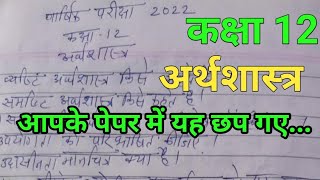 वार्षिक परीक्षा 2022
कक्षा-12
अर्थशास्त्र
कक्षा 12
अर्थशास्त्र
व्यष्टि अर्थशास्त्र किसे
समष्टि अर्थशास्त्र किसे कहते हैं।
आपके पेपर में यह छप गए...
को परिभाषित कीजिए।
उदासीनता मानचित्र क्या है।